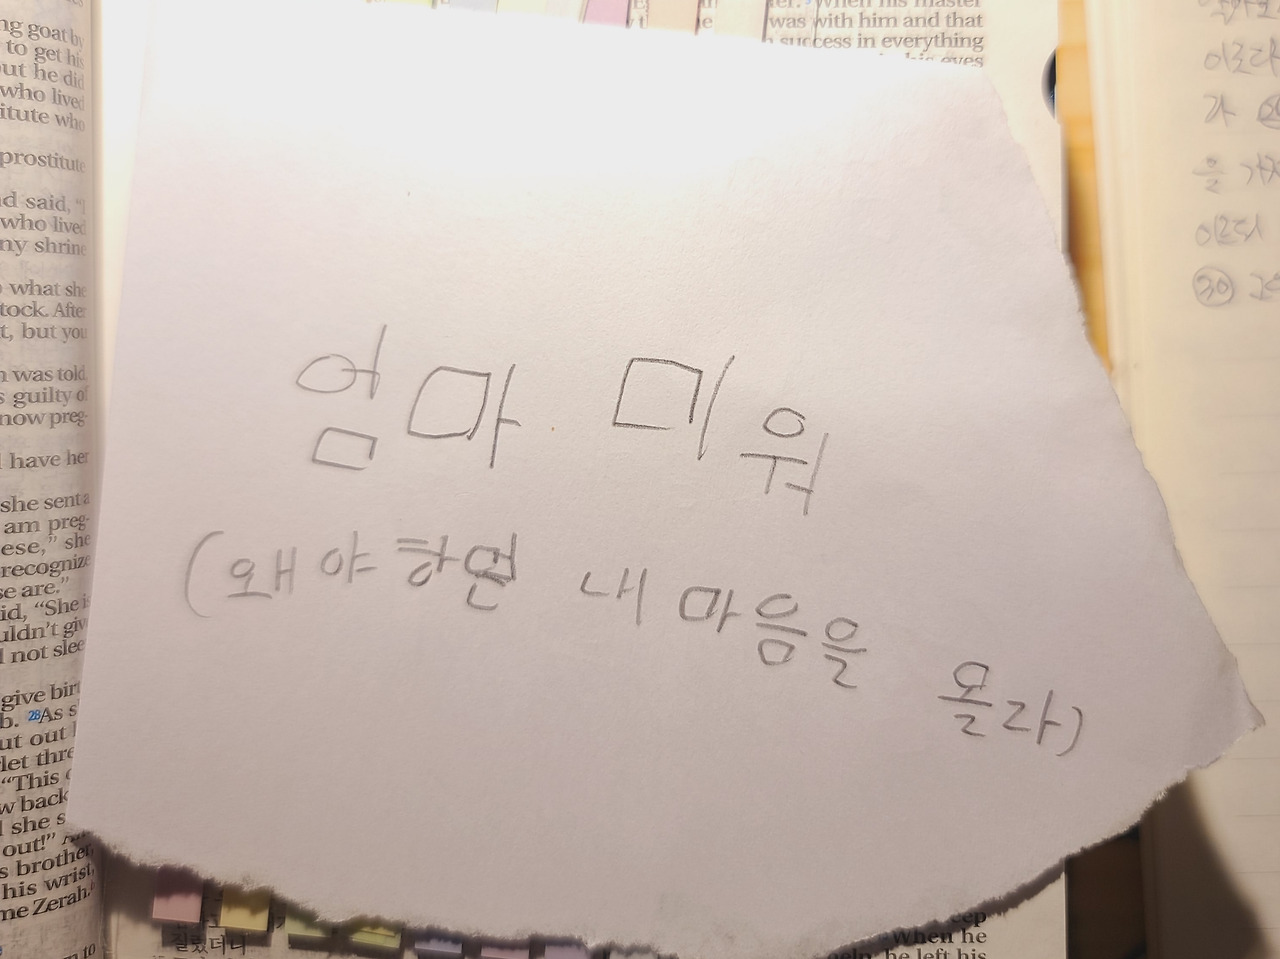 ng goat by
to get his
out he did
who lived
itute who
prostitute
d said, "I
who lived
ny shrine
what she
tock. After
t, but you
n was told,
s guilty of
now preg-
l have her
she sent a
am preg-
ese," she
recognize
se are."
id, "She is
uldn't giv
l not slee
give birt
b. 28As s
ut out
let thre
"This
w back
l she s
out!"
s brother,
his wrist,
me Zerah.
to
was with him and that
success in everything
his eyes
엄마 미워
(왜야하면 내 마음을 몰라)
질렀더니
When he
he left his
이르다
가
을
㉚